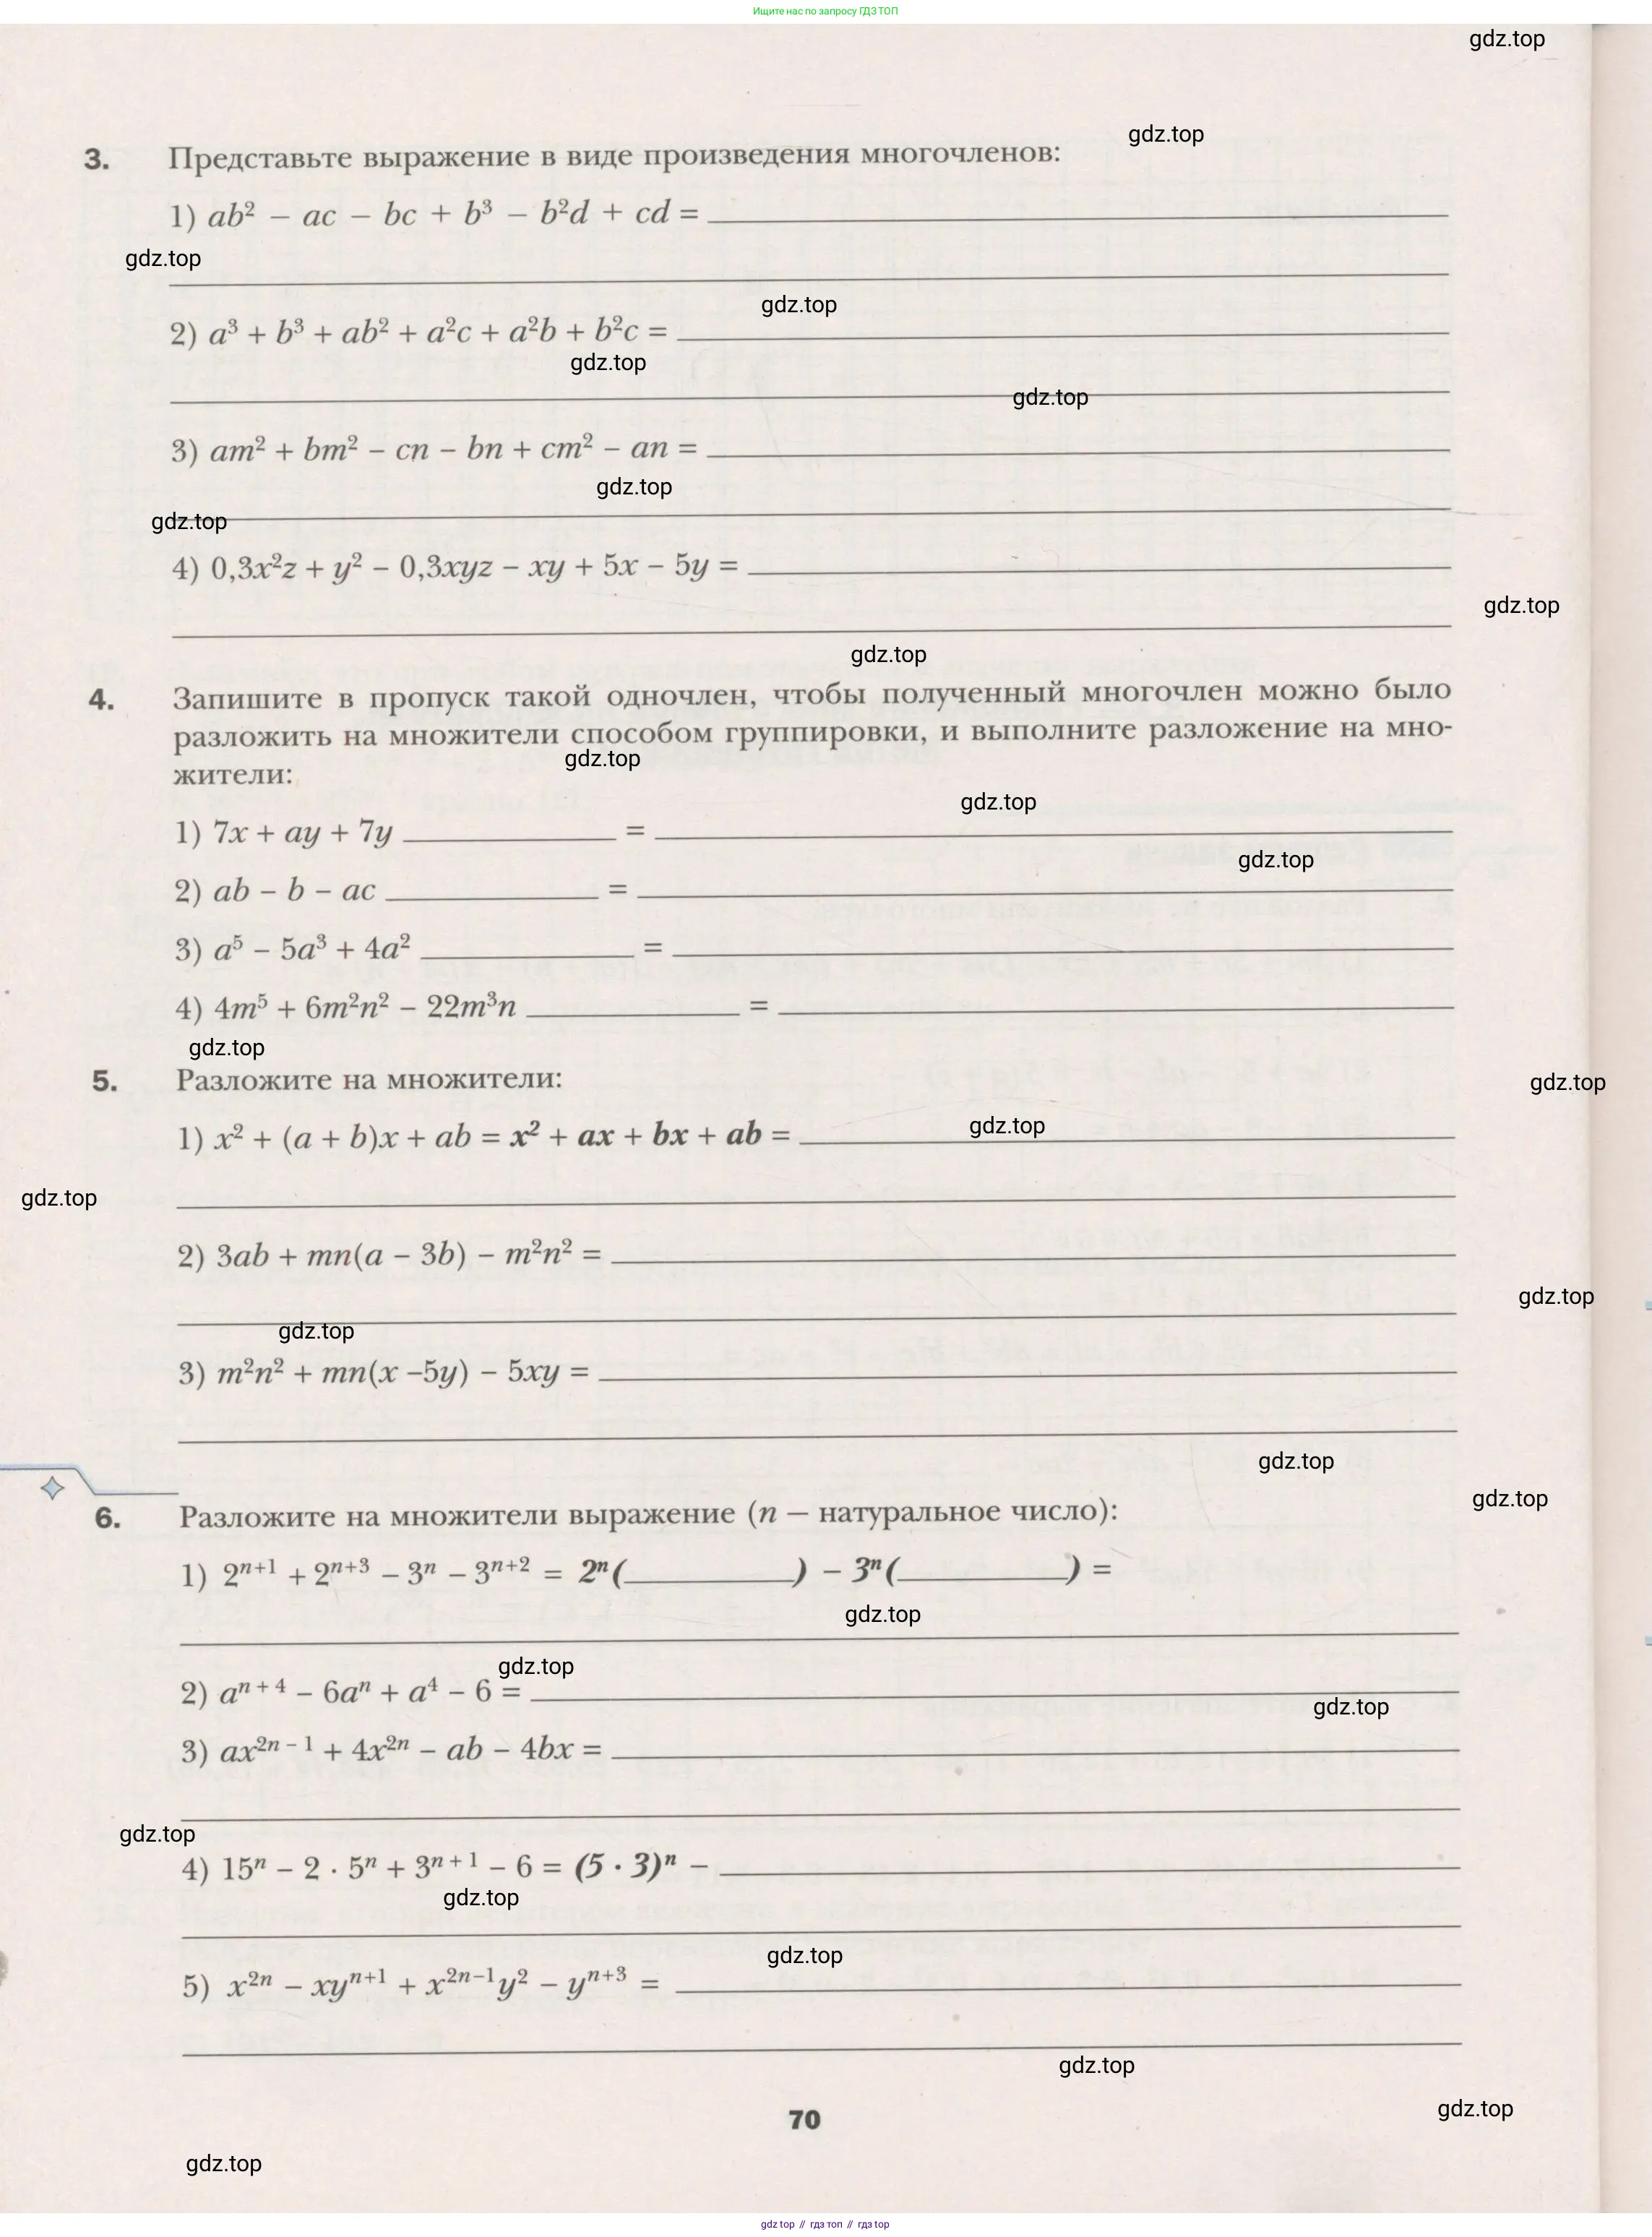 Ищите нас по запросу ГДЗ ТОП
gdz.top
gdz.top
3. Представьте выражение в виде произведения многочленов:
1) ab² − ac − bc + b³ − b²d + cd = ____
gdz.top
gdz.top
2) a³ + b³ + ab² + a²c + a²b + b²c = ____
gdz.top
gdz.top
3) am² + bm² − cn − bn + cm² − an = ____
gdz.top
gdz.top
4) 0,3x²z + y² − 0,3xyz − xy + 5x − 5y = ____
gdz.top
gdz.top
4. Запишите в пропуск такой одночлен, чтобы полученный многочлен можно было
разложить на множители способом группировки, и выполните разложение на мно-
gdz.top
жители:
gdz.top
1) 7x + ay + 7y ____ = ____
gdz.top
2) ab − b − ac ____ = ____
3) a⁵ − 5a³ + 4a² ____ = ____
4) 4m⁵ + 6m²n² − 22m³n ____ = ____
gdz.top
5. Разложите на множители:
gdz.top
gdz.top
1) x² + (a + b)x + ab = x² + ax + bx + ab = ____
gdz.top
2) 3ab + mn(a − 3b) − m²n² = ____
gdz.top
gdz.top
3) m²n² + mn(x −5y) − 5xy = ____
gdz.top
gdz.top
6. Разложите на множители выражение (n — натуральное число):
1) 2ⁿ⁺¹ + 2ⁿ⁺³ − 3ⁿ − 3ⁿ⁺² = 2ⁿ(____) − 3ⁿ(____) =
gdz.top
gdz.top
2) aⁿ⁺⁴ − 6aⁿ + a⁴ − 6 = ____
gdz.top
3) ax²ⁿ⁻¹ + 4x²ⁿ − ab − 4bx = ____
gdz.top
4) 15ⁿ − 2 · 5ⁿ + 3ⁿ⁺¹ − 6 = (5 · 3)ⁿ − ____
gdz.top
gdz.top
5) x²ⁿ − xyⁿ⁺¹ + x²ⁿ⁻¹y² − yⁿ⁺³ = ____
gdz.top
gdz.top
70
gdz.top
gdz top // гдз топ // гдз top